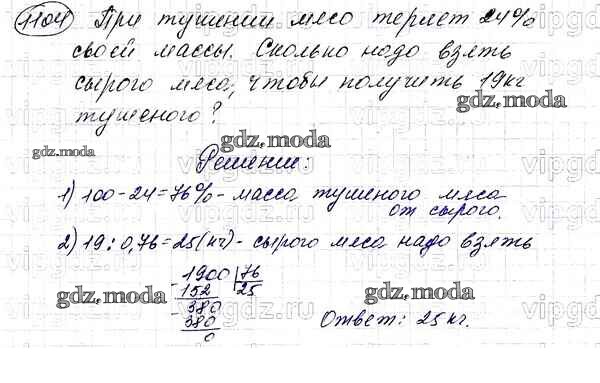 1104 При тушении мясо теряет 24%
своей массы. Сколько надо взять
сырого мяса, чтобы получить 19кг
тушеного?
Решение:
1) 100-24=76%- масса тушеного мяса
от сырого.
2) 19:0,76=25(кг)- сырого мяса надо взять
1900 76
- 152 25
380
- 380
0
Ответ: 25 кг.
gdz.moda
gdz.moda
gdz.moda
gdz.moda
gdz.moda